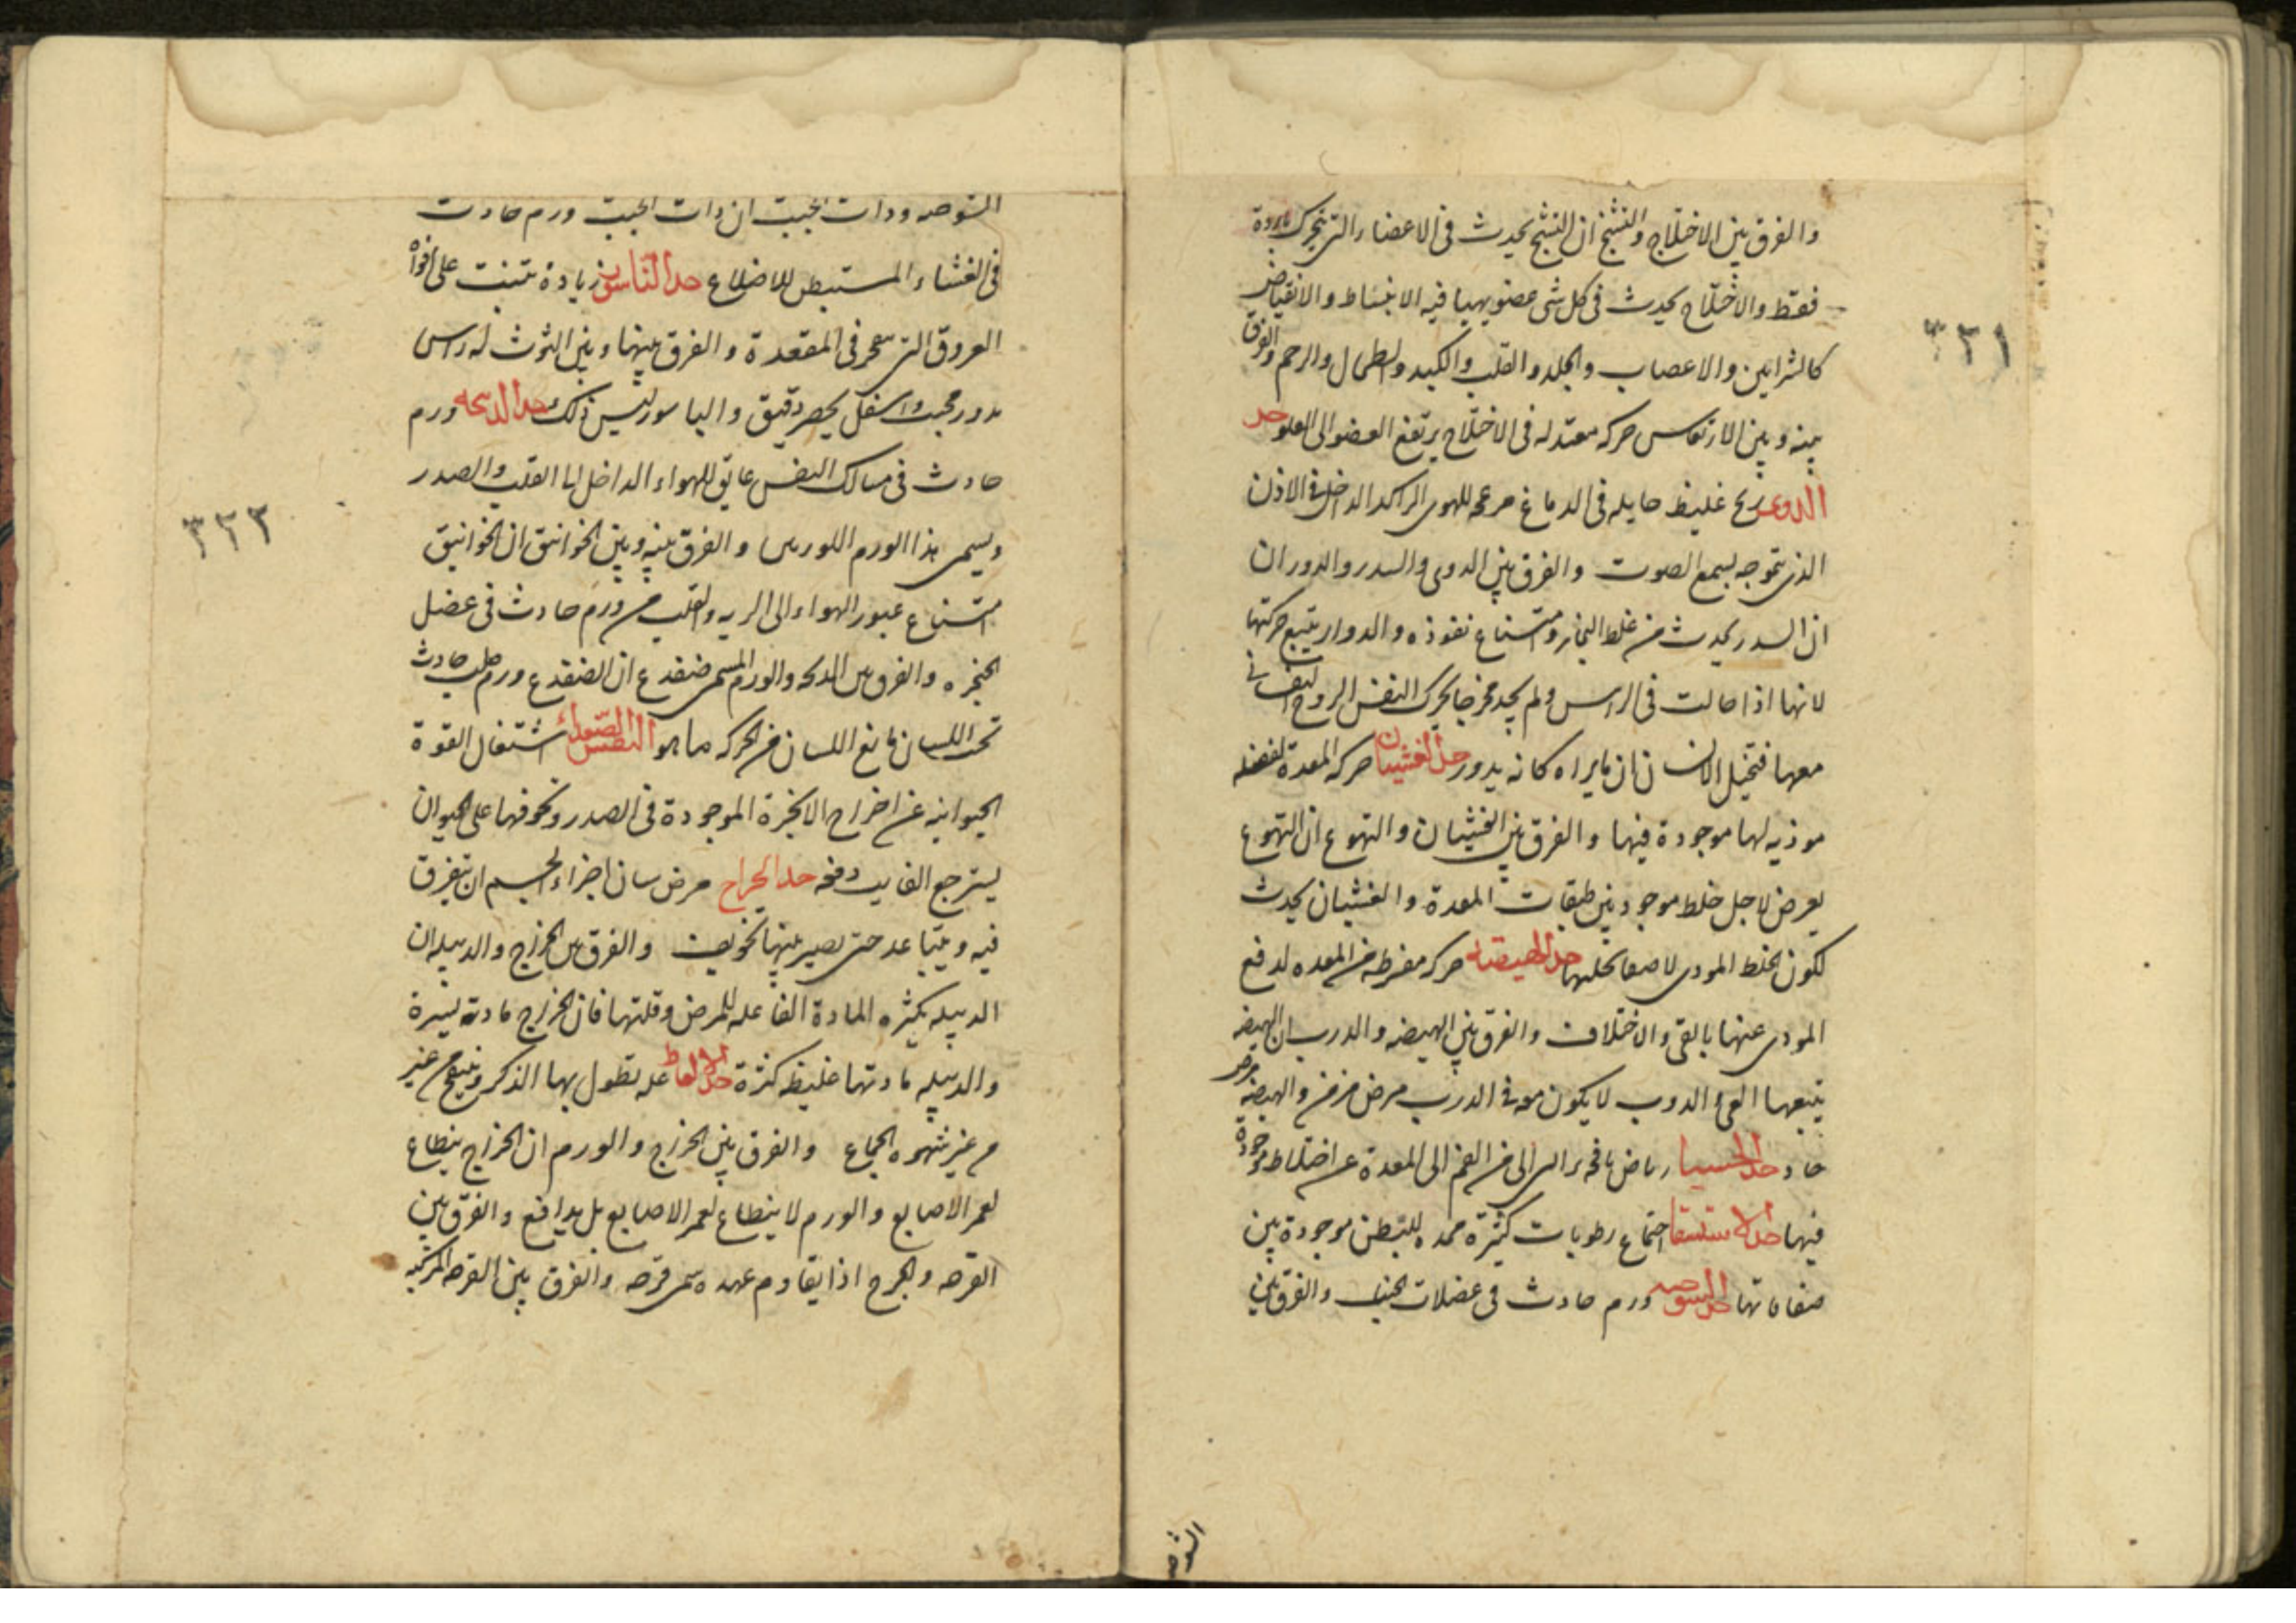 والفرق بين الاختلاج والتشنج ان التشنج يحدث فى الاعضاء التى تتحرك بارادة
فقط والاختلاج يحدث فى كل شى عضو يهيا فيه الانبساط والانقباض
كالشرايين والاعصاب والجلد والقلب والكبد والطحال والرحم والفرق
بينه وبين الارتعاس حركه معتدله فى الاختلاج يرتفع العضو الى العلو حد
الدوى ريح غليظ حايله فى الدماغ مزعجه للهوى الراكد الداخل فى الاذن
الذى بتموجه يسمع الصوت والفرق بين الدوى والسدر والدوران
ان السدر يحدث من غلط البخار وامتناع نفوذه والدوار يتبع حركتها
لانها اذا حالت فى الراس ولم يجد مخرجا يحرك النفس الروح النفسانى
معها فتخيل الانسان ان مايراه كانه يدور حد الغثيان حركه المعدة لفضله
موذيه لها موجودة فيها والفرق بين الغثيان والتهوع ان التهوع
يعرض لاجل خلط موجود بين طبقات المعدة والغثيان يحدث
لكون الخلط الموذى لاصقا بخملها حد الهيضه حركه مفرطه من المعده لدفع
الموذى عنها بالقى والاختلاف والفرق بين الهيضه والدرب ان الهيضه
يتبعها القى والدرب لا يكون معه فى الدرب مرض مزمن والهيضه مرض
حاد حد الجسا رياض نافخه تراقى من الفم الى المعدة عن اختلاط موجودة
فيها حد الاستسقا اجتماع رطوبات كثيرة ممده للبطن موجودة بين
صفاقاتها حد الشوصه ورم حادث فى عضلات الجنب والفرق بين
الشوصه
٣٢١
الشوصه وذات الجنب ان ذات الجنب ورم حادث
فى الغشاء المستبطن للاضلاع حد الناسور زيادة تنبت على افواه
العروق التى فى المقعدة والفرق بينها وبين التوث له راس
مدور محبب واسفل يحصر دقيق والباسور ليس ذلك حد الذبحه ورم
حادث فى مسالك النفس عايق للهواء الداخل الى القلب والصدر
ويسمى هذا الورم اللورس والفرق بينه وبين الخوانيق ان الخوانيق
امتناع عبور الهواء الى الريه والقلب من ورم حادث فى عضل
الحنجره والفرق بين الذبحه والورم المسمى ضفدع ان الضفدع ورم صلب حادث
تحت اللسان مانع اللسان من الحركه ما هو النفس الصعداء اشتغال القوة
الحيوانيه عن اخراج الابخرة الموجودة فى الصدر وخوفها على الحيوان
يسترجع الفايت دفعه حد الخراج مرض سان اجزاء الجسم ان يتفرق
فيه ويتباعد حتى يصير بينها تجويف والفرق بين الخراج والدبيله ان
الدبيله بكثره المادة الفاعله للمرض وقلتها فان الخراج مادته يسيرة
والدبيله مادتها غليظه كثرة حد الانعاظ عله تطول بها الذكر وينفتح من غير
من غير شهوه الجماع والفرق بين الخراج والورم ان الخراج ينطاع
لغمز الاصابع والورم لا ينطاع لغمز الاصابع بل يدافع والفرق بين
القرحه والجرح اذا يقادم عهده سمى قرحه والفرق بين القرحه المركبه
٣٢٢